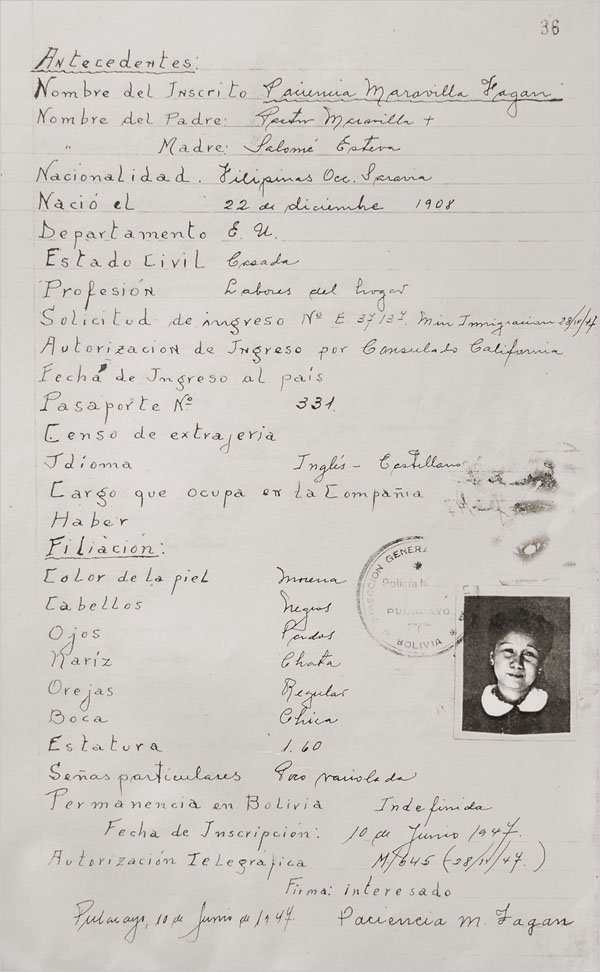 36
Antecedentes:
Nombre del Inscrito Paciencia Maravilla Fagan.
Nombre del Padre: Pastor Maravilla +
" Madre: Salomé Esteva
Nacionalidad. Filipinas Occ. Saravia
Nació el 22 de diciembre 1908
Departamento E. U.
Estado Civil Casada
Profesión Labores del hogar
Solicitud de ingreso Nº E 37/37. Min Inmigracion 28/IV/47
Autorizacion de Ingreso por Consulado California
Fecha de Ingreso al país
Pasaporte Nº 331.
Censo de extrajeria
Idioma Inglés - Castellano
Cargo que ocupa en la Compañia
Haber
Filiación:
Color de la piel Morena
Cabellos Negros
Ojos Pardos
Naríz Chata
Orejas Regular
Boca Chica
Estatura 1.60
Señas particulares Poco variolada
Permanencia en Bolivia Indefinida
Fecha de Inscripción: 10 de Junio 1947.
Autorización Telegráfica M/645 (28/IV/47.)
Firma: interesado
Pulacayo, 10 de Junio de 1947 Paciencia M. Fagan
DIRECCION GENERAL
Policía
PULACAYO
BOLIVIA